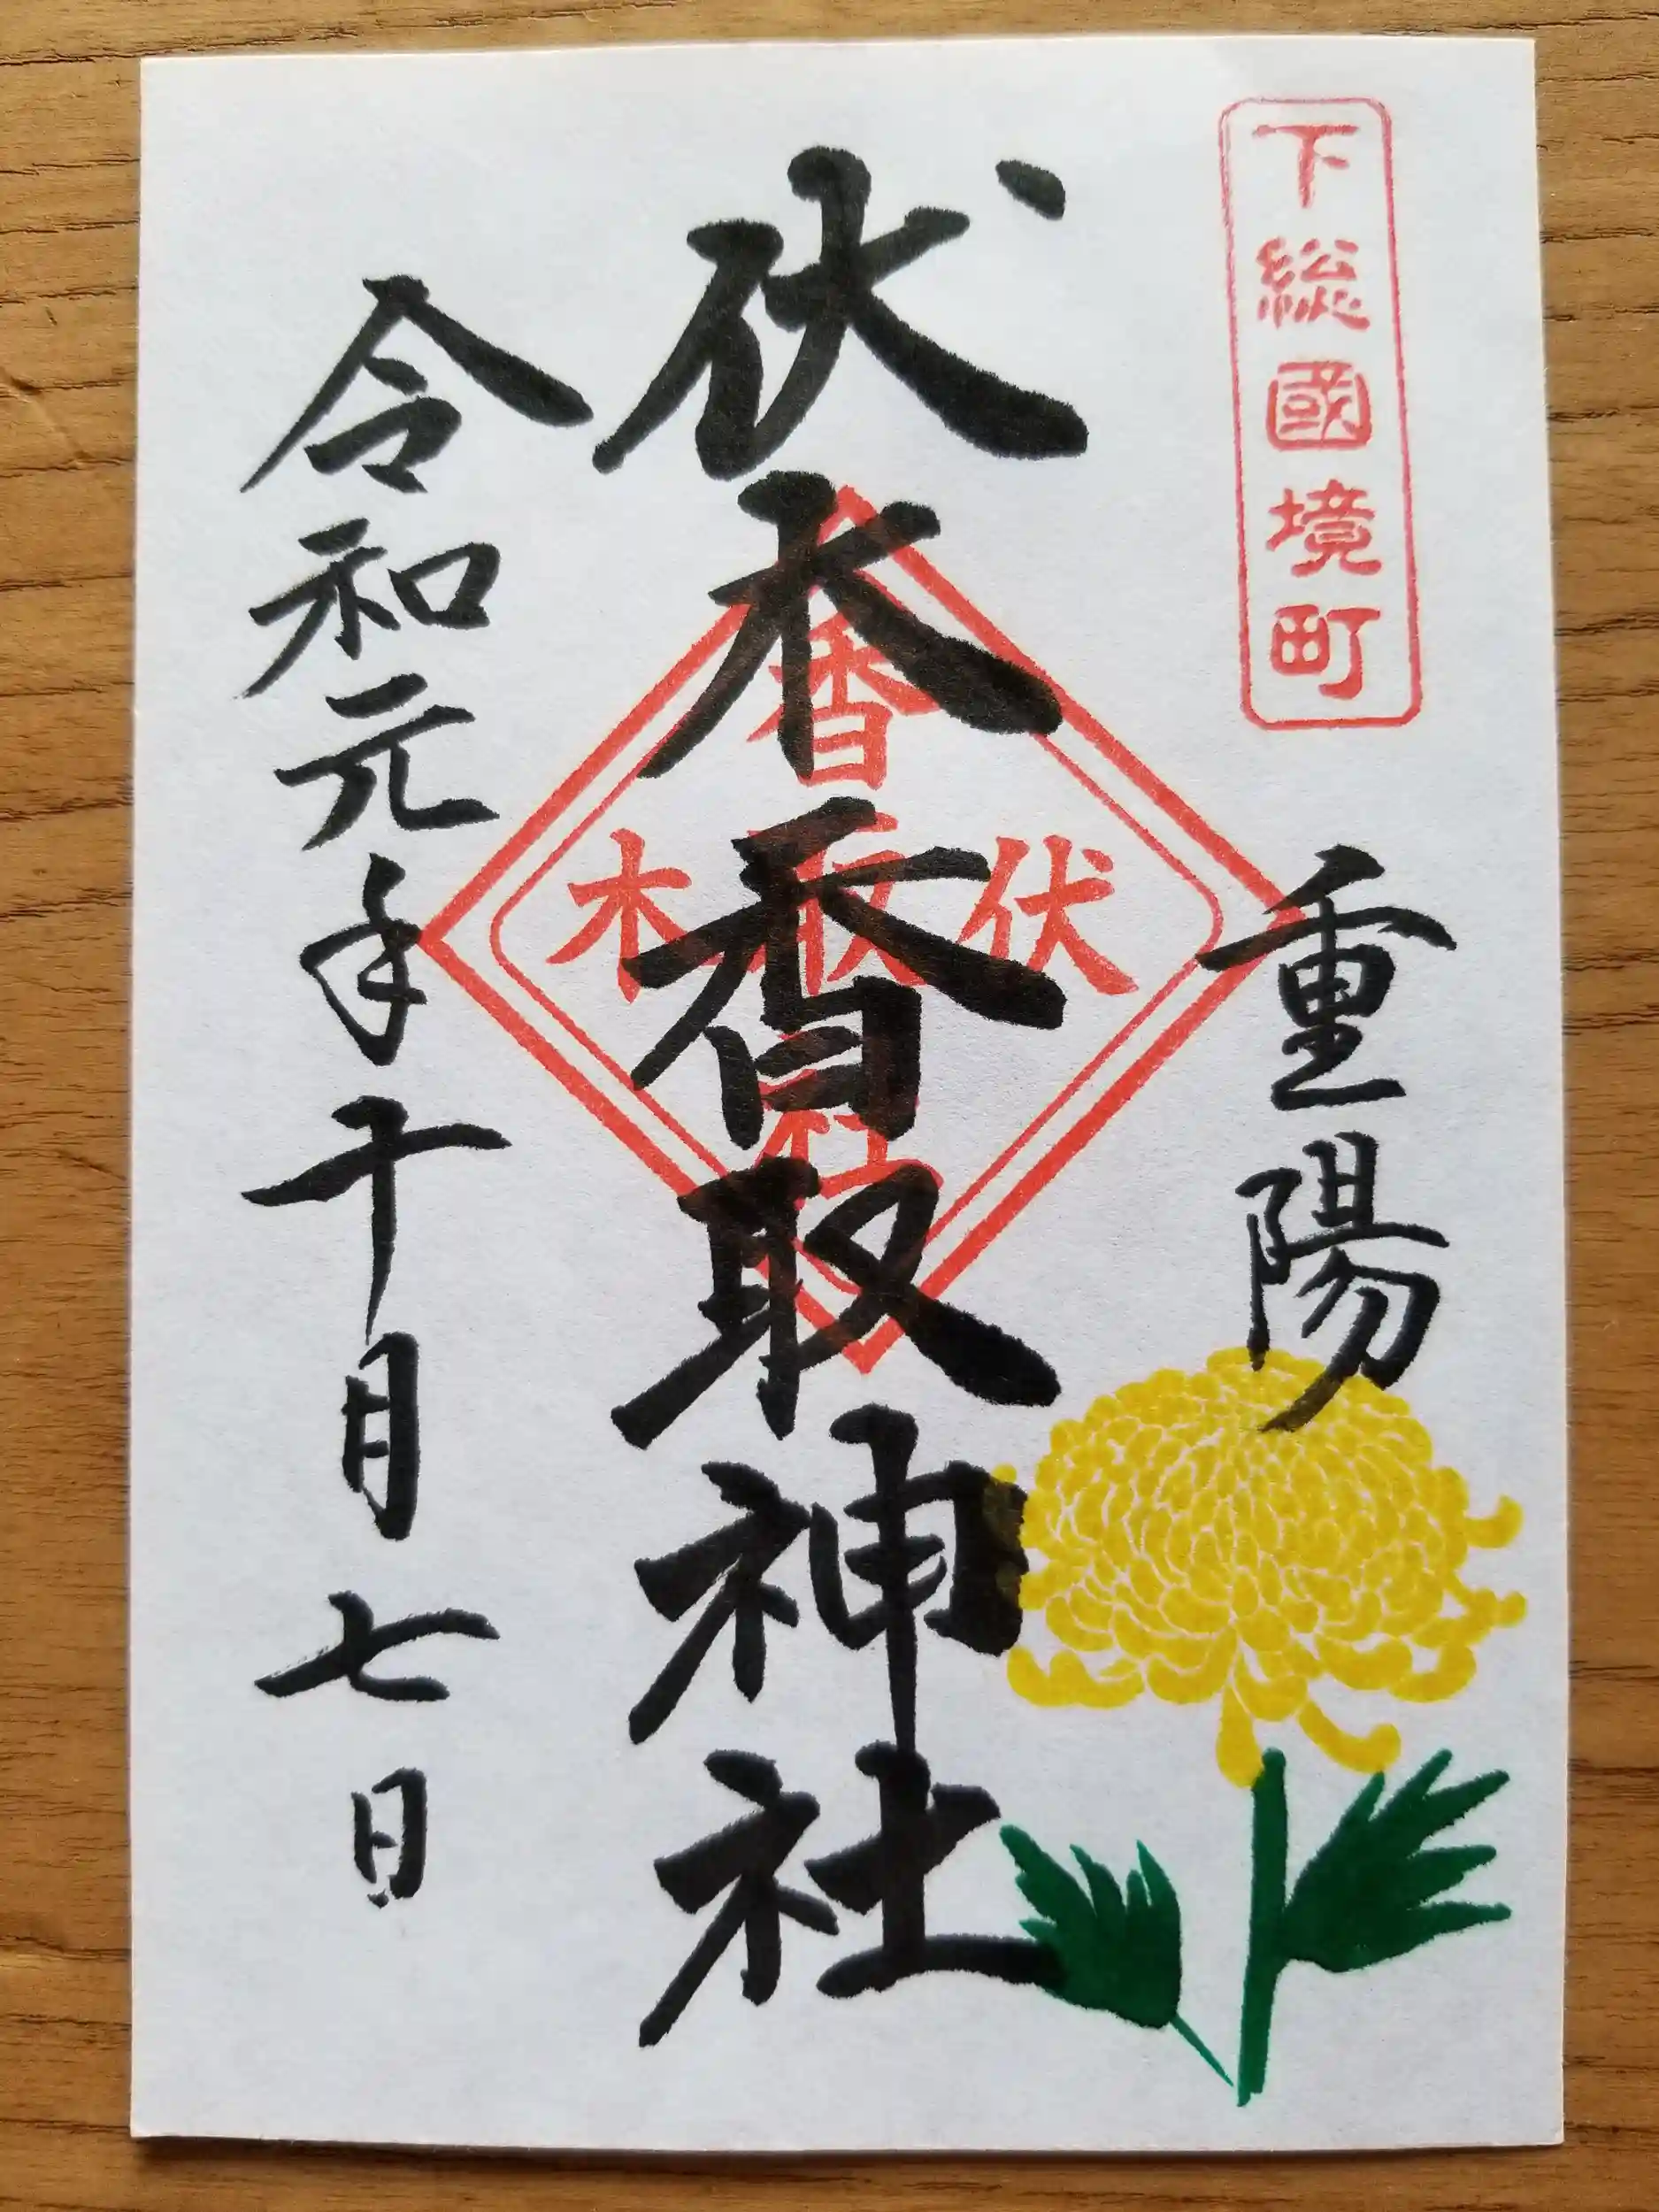 下総國境町
重陽
伏木香取神社
香
伏取木
社
令和元年十月七日